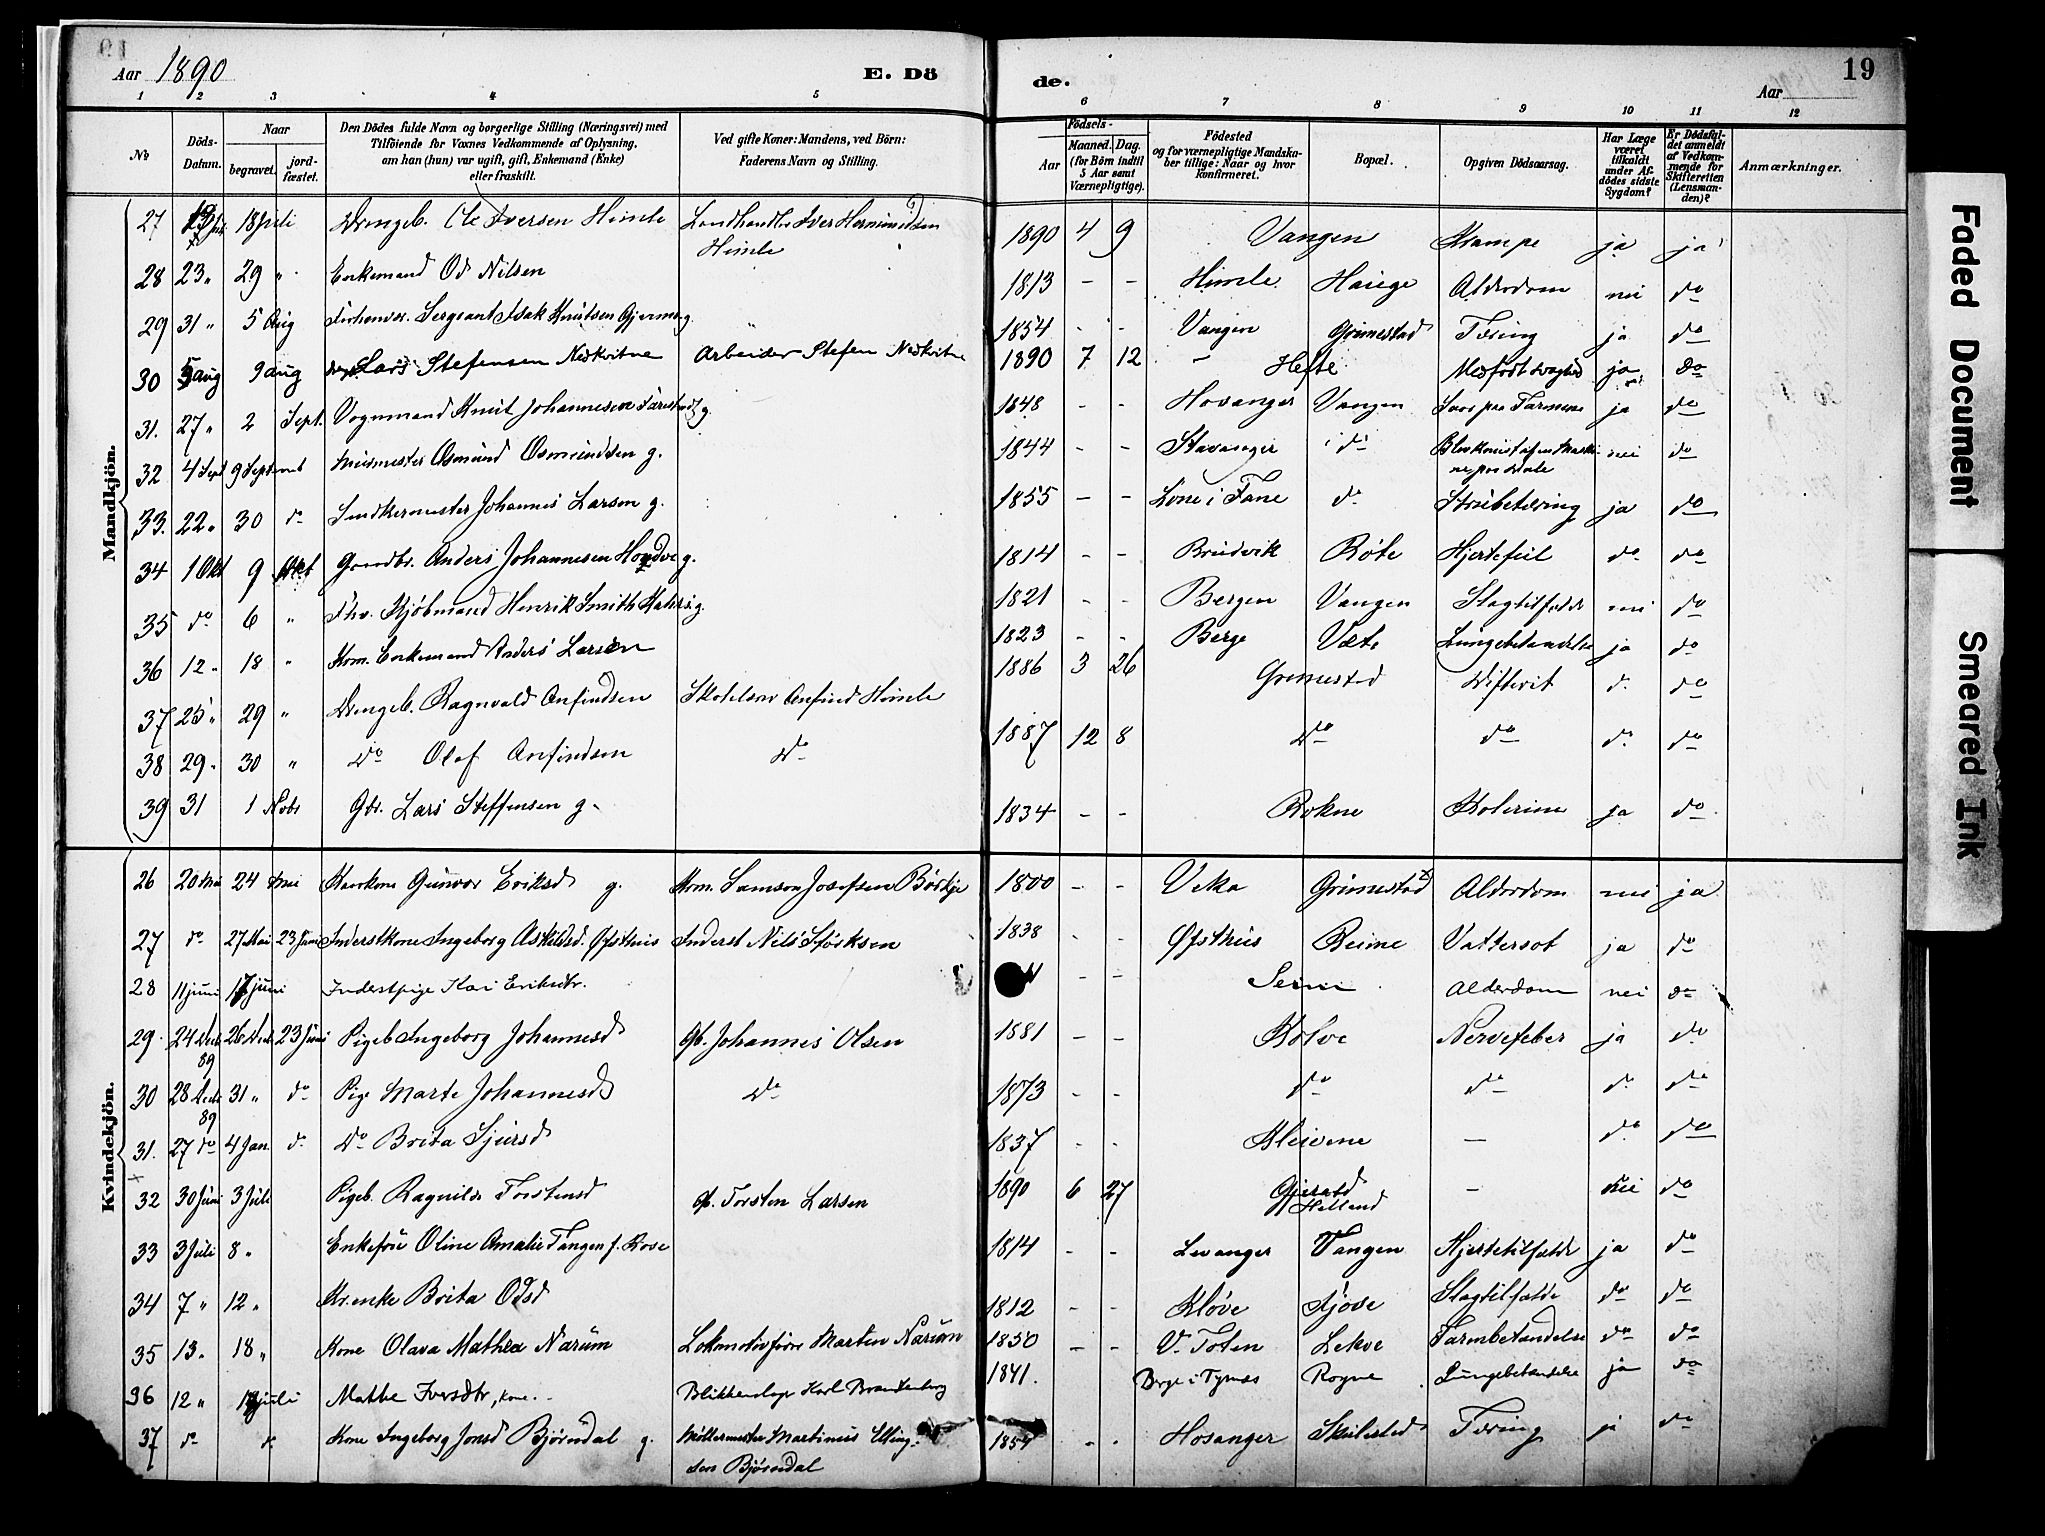 Aar 1890 E. Dö de. Aar 19
1 2 3 4 5 6 7 8 9 10 11 12
No Döds-Datum. Naar begravet. jordfæstet. Den Dödes fulde Navn og borgerlige Stilling (Næringsvei) med Tilföiende for Voxnes Vedkommende af Oplysning, om han (hun) var ugift, gift, Enkemand (Enke) eller fraskilt. Ved gifte Koner: Mandens, ved Börn: Faderens Navn og Stilling. Födsels- Aar Maaned. Dag. (for Börn indtil 5 Aar samt Værnepligtige). Födested og for værnepligtige Mandskaber tillige: Naar og hvor konfirmeret. Bopæl. Opgiven Dödsaarsag. Har Læge været tilkaldt under Afdödes sidste Sygdom? Er Dödsfaldet anmeldt af Vedkommende for Skifteretten (Lensmanden)? Anmærkninger.
Mandkjön.
27 18 Juli Drengeb. Ole Iversen Himle Landhandler Iver Hermundsen Himle 1890 4 9 Vangen Krampe ja ja
28 23 " 29 " Enkemand Od Nilsen 1813 - - Himle Alderdom nei do
29 31 " 5 Aug Sergeant Isak Knutsen 1854 - - Vangen Grimestad Tæring ja do
30 5 aug 9 aug Lars Stefensen Nedkvitne Arbeider Stefen Nedkvitne 1890 7 12 - Hefte Medfødt svaghed ja do
31. 27 " 2 Sept. Vognmand Knut Johannesen g. 1848 - - Vangen ja do
32 4 Sept 9 Sept Osmund Osmundsen g. 1844 - - Stavanger do nei do
33. 22 " 30 do Snedkermester Johannes Larsen g. 1855 - - Lone i Fane do Strubetæring ja do
34 1 Okt 9 Okt Gaardbr. Anders Johannesen g. 1814 - - Brudvik Røte Hjertefeil do do
35 do 6 " Fhv. Kjøbmand Henrik Smith g. 1821 - - Bergen Vangen Slagtilfælde nei do
36 12 " 18 " Kom. Enkemand Anders Larsen 1823 - - Berge Væte Lungebetændelse ja do
37 25 " 29 " Drengeb. Ragnvald Anfindsen Anfind Himle 1886 3 26 Grimestad Difterit do do
38 29 " 30 " Do Olaf Anfindsen Do 1887 12 8 Do do do do
39 31 1 Nobr Gbr. Lars Steffensen g. 1834 - - Rokne Kolerine ja do
Kvindekjön.
26 20 Mai 24 Mai Gunvor Eriksd g. Kom. Samson Josefsen Börkje 1800 - - Veka Grimestad Alderdom nei ja
27 do 27 Mai 23 Juni Inderstkone Ingeborg Askildsd. Øfsthus Inderst Nils 1838 - - Øfsthus Reime Vattersot ja do
28 11 juni 17 juni Kari Eriksdtr. - - Seim Alderdom nei do
29. 24 Decb. 89 26 Decb. 23 Juni Pigeb Ingeborg Johannesd Gb. Johannes Olsen 1881 - - Kolve Nervefeber ja do
30 28 Decb. 89 31 " do Pige Marte Johannesd Do 1873 - - do do do do
31. 27 do 4 Jan. do Do Brita Sjursd 1837 - - Kleivene - do do
32 30 Juni 3 Juli Pigeb. Ragnilde Torstensd Torsten Larsen 1890 6 27 Helland - nei do
33 3 Juli 8 " Enkefrue Oline Amalie Tangen f. 1814 - - Levanger Vangen Hjertetilfælde ja do
34 7 " 12 " Brita Odsd 1812 - - Kløve Slagtilfælde do do
35 13 " 18 " Kone Olava Mathea Narum Lokomotivfører Martin Narum 1850 - - V. Toten Lekve Tarmbetændelse do do
36 12 " juli Iversdtr, kone. Blikkenslager Karl Brandenborg 1841. Rogne Lungebetændelse ja do
37 do Kone Ingeborg Jonsd Bjørndal g. Möllermester Martinus Bjørndal 1854 - - Hosanger Skulestad Tæring ja do
Faded Document
Smeared Ink